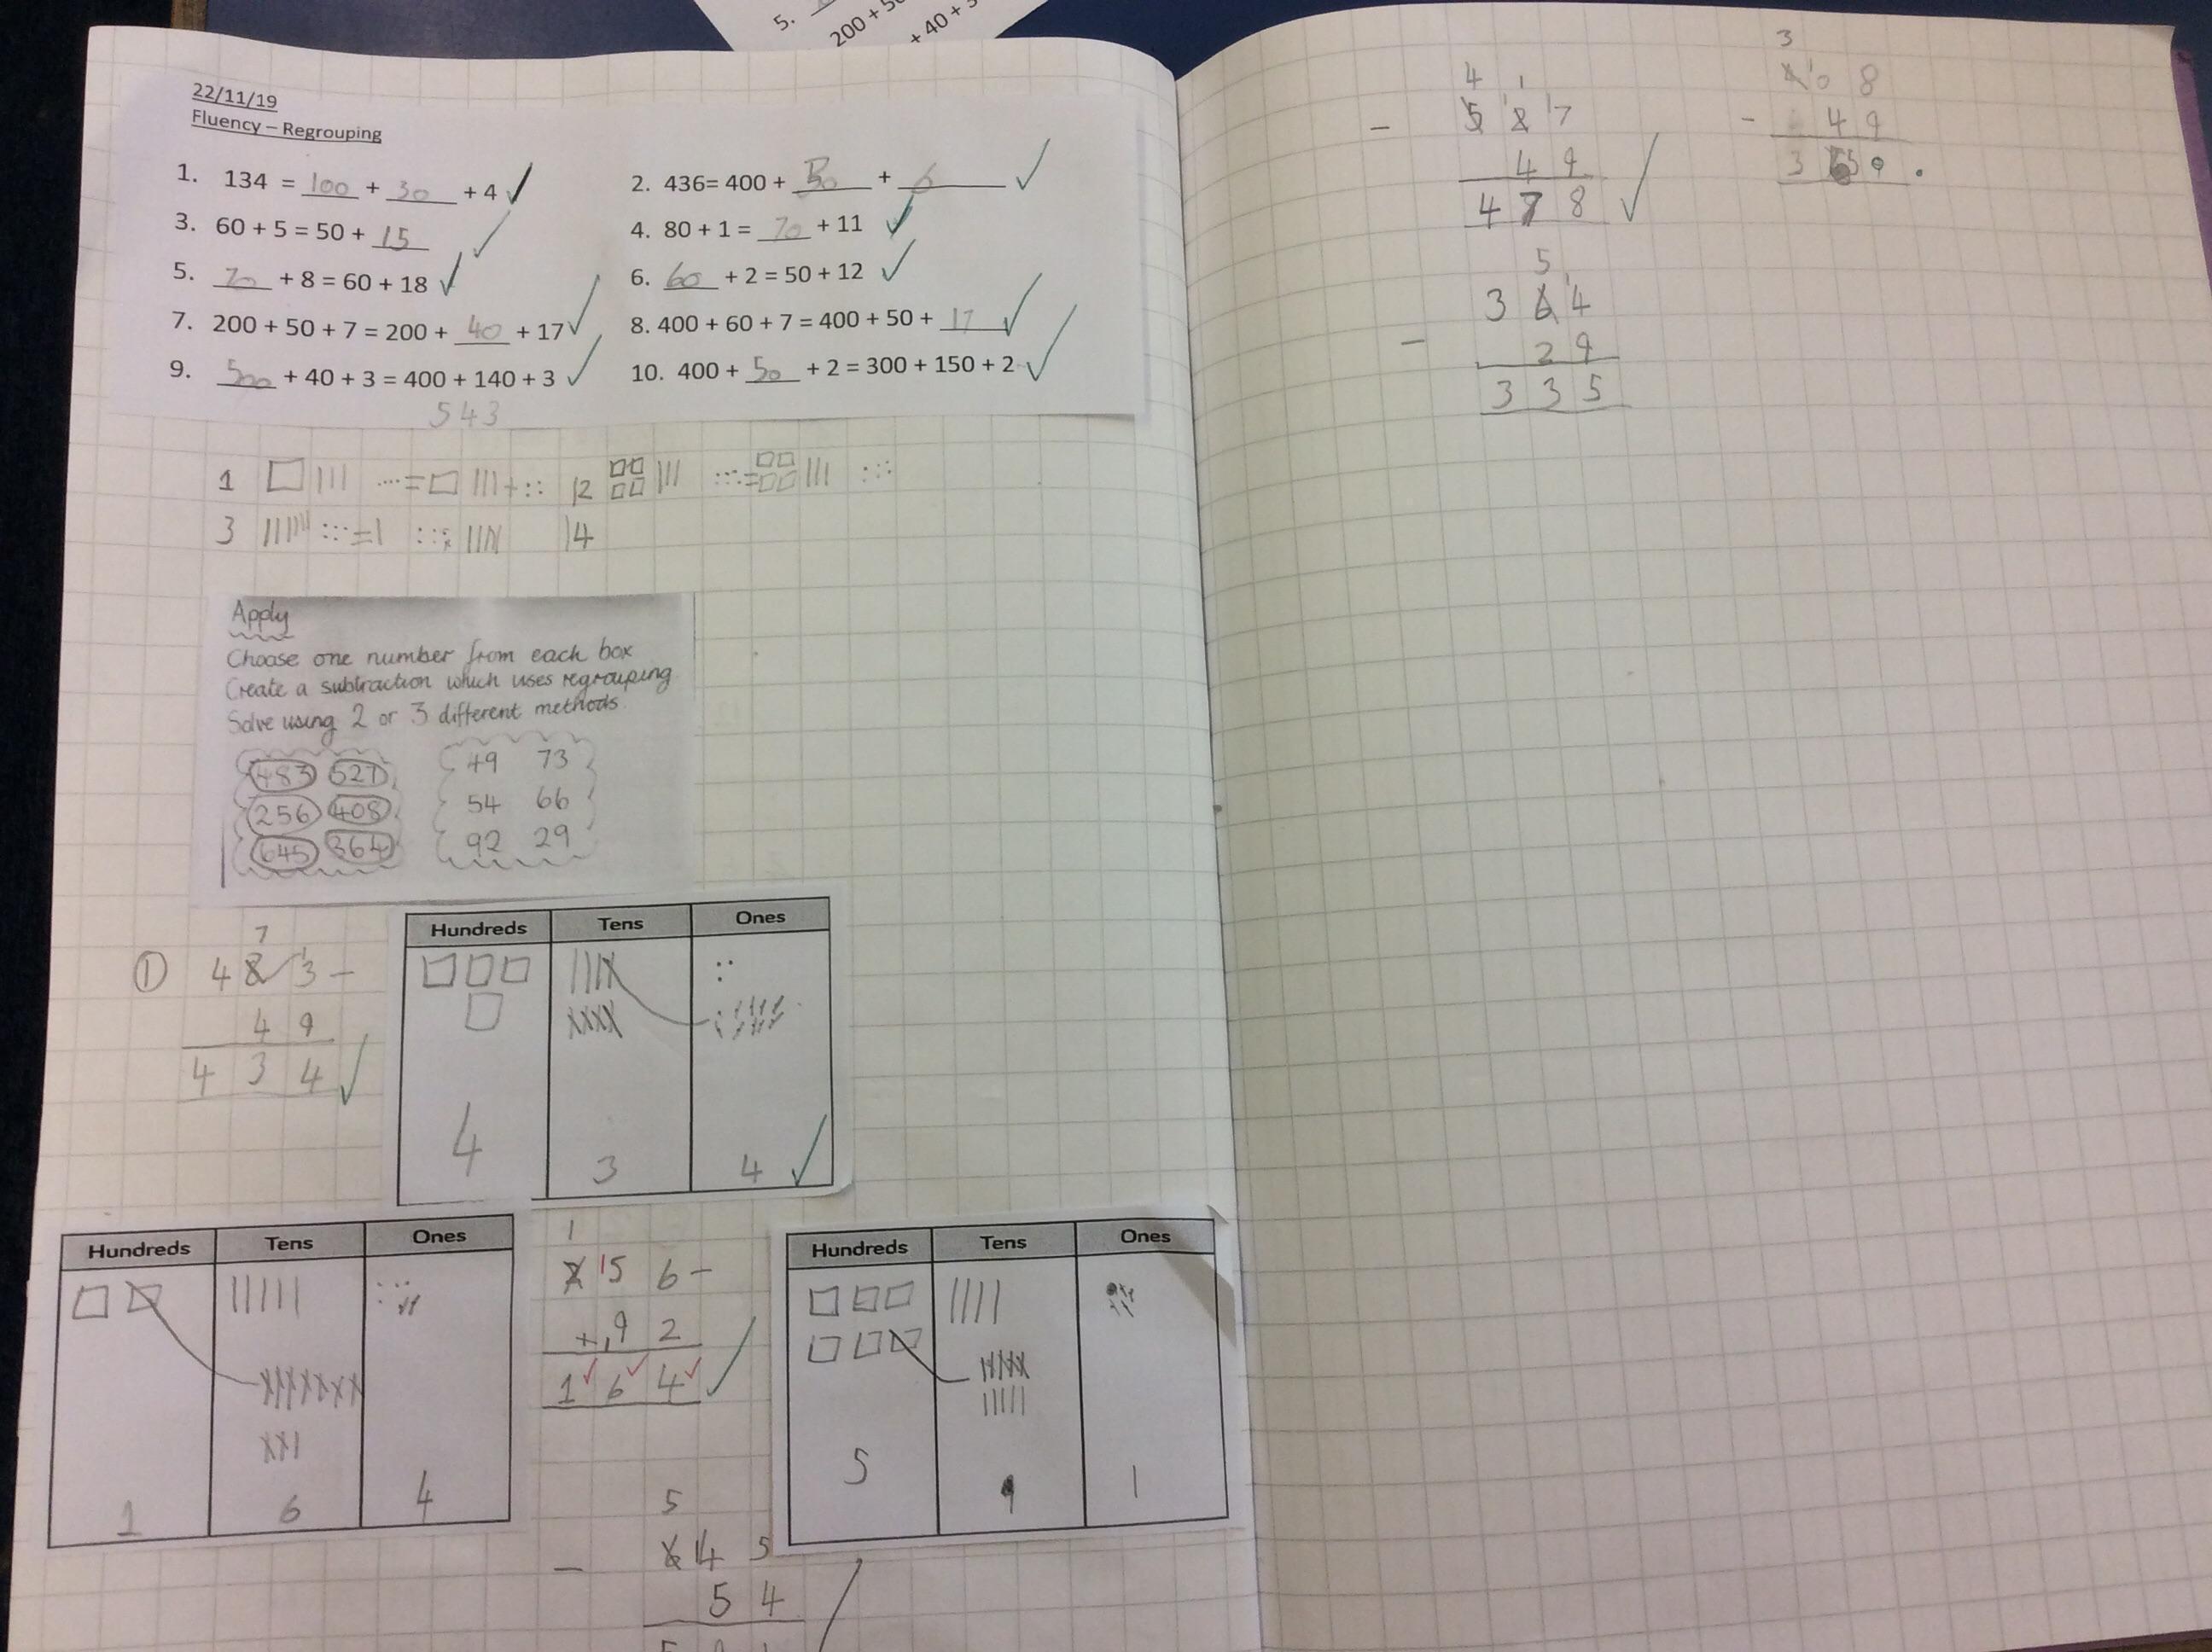 5.
200 + 50
+ 40 + 3
22/11/19
Fluency – Regrouping
1. 134 = 100 + 30 + 4 ✓
2. 436= 400 + 30 + 6 ✓
3. 60 + 5 = 50 + 15 ✓
4. 80 + 1 = 70 + 11 ✓
5. 70 + 8 = 60 + 18 ✓
6. 60 + 2 = 50 + 12 ✓
7. 200 + 50 + 7 = 200 + 40 + 17 ✓
8. 400 + 60 + 7 = 400 + 50 + 17 ✓
9. 500 + 40 + 3 = 400 + 140 + 3 ✓
10. 400 + 50 + 2 = 300 + 150 + 2 ✓
543
1
12
3
14
Apply
Choose one number from each box
Create a subtraction which uses regrouping
Solve using 2 or 3 different methods.
483 527
256 408
645 364
49 73
54 66
92 29
7
① 4 8 13 –
4 9
4 3 4 ✓
Hundreds Tens Ones
4 3 4 ✓
Hundreds Tens Ones
1 6 4
1
2 15 6 –
9 2
1 ✓ 6 ✓ 4 ✓ ✓
Hundreds Tens Ones
5 9 1
5
– 6 14 5
5 4
4 1
– 5 12 17
4 9
4 7 8 ✓
3
4 10 8
– 4 9
3 5 9 .
5
3 6 14
– 2 9
3 3 5